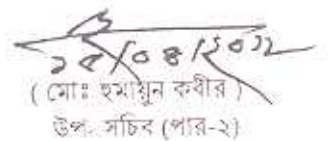 ২৫/০৪/২০১২
( মোঃ হুমায়ুন কবীর )
উপ- সচিব (পার-২)